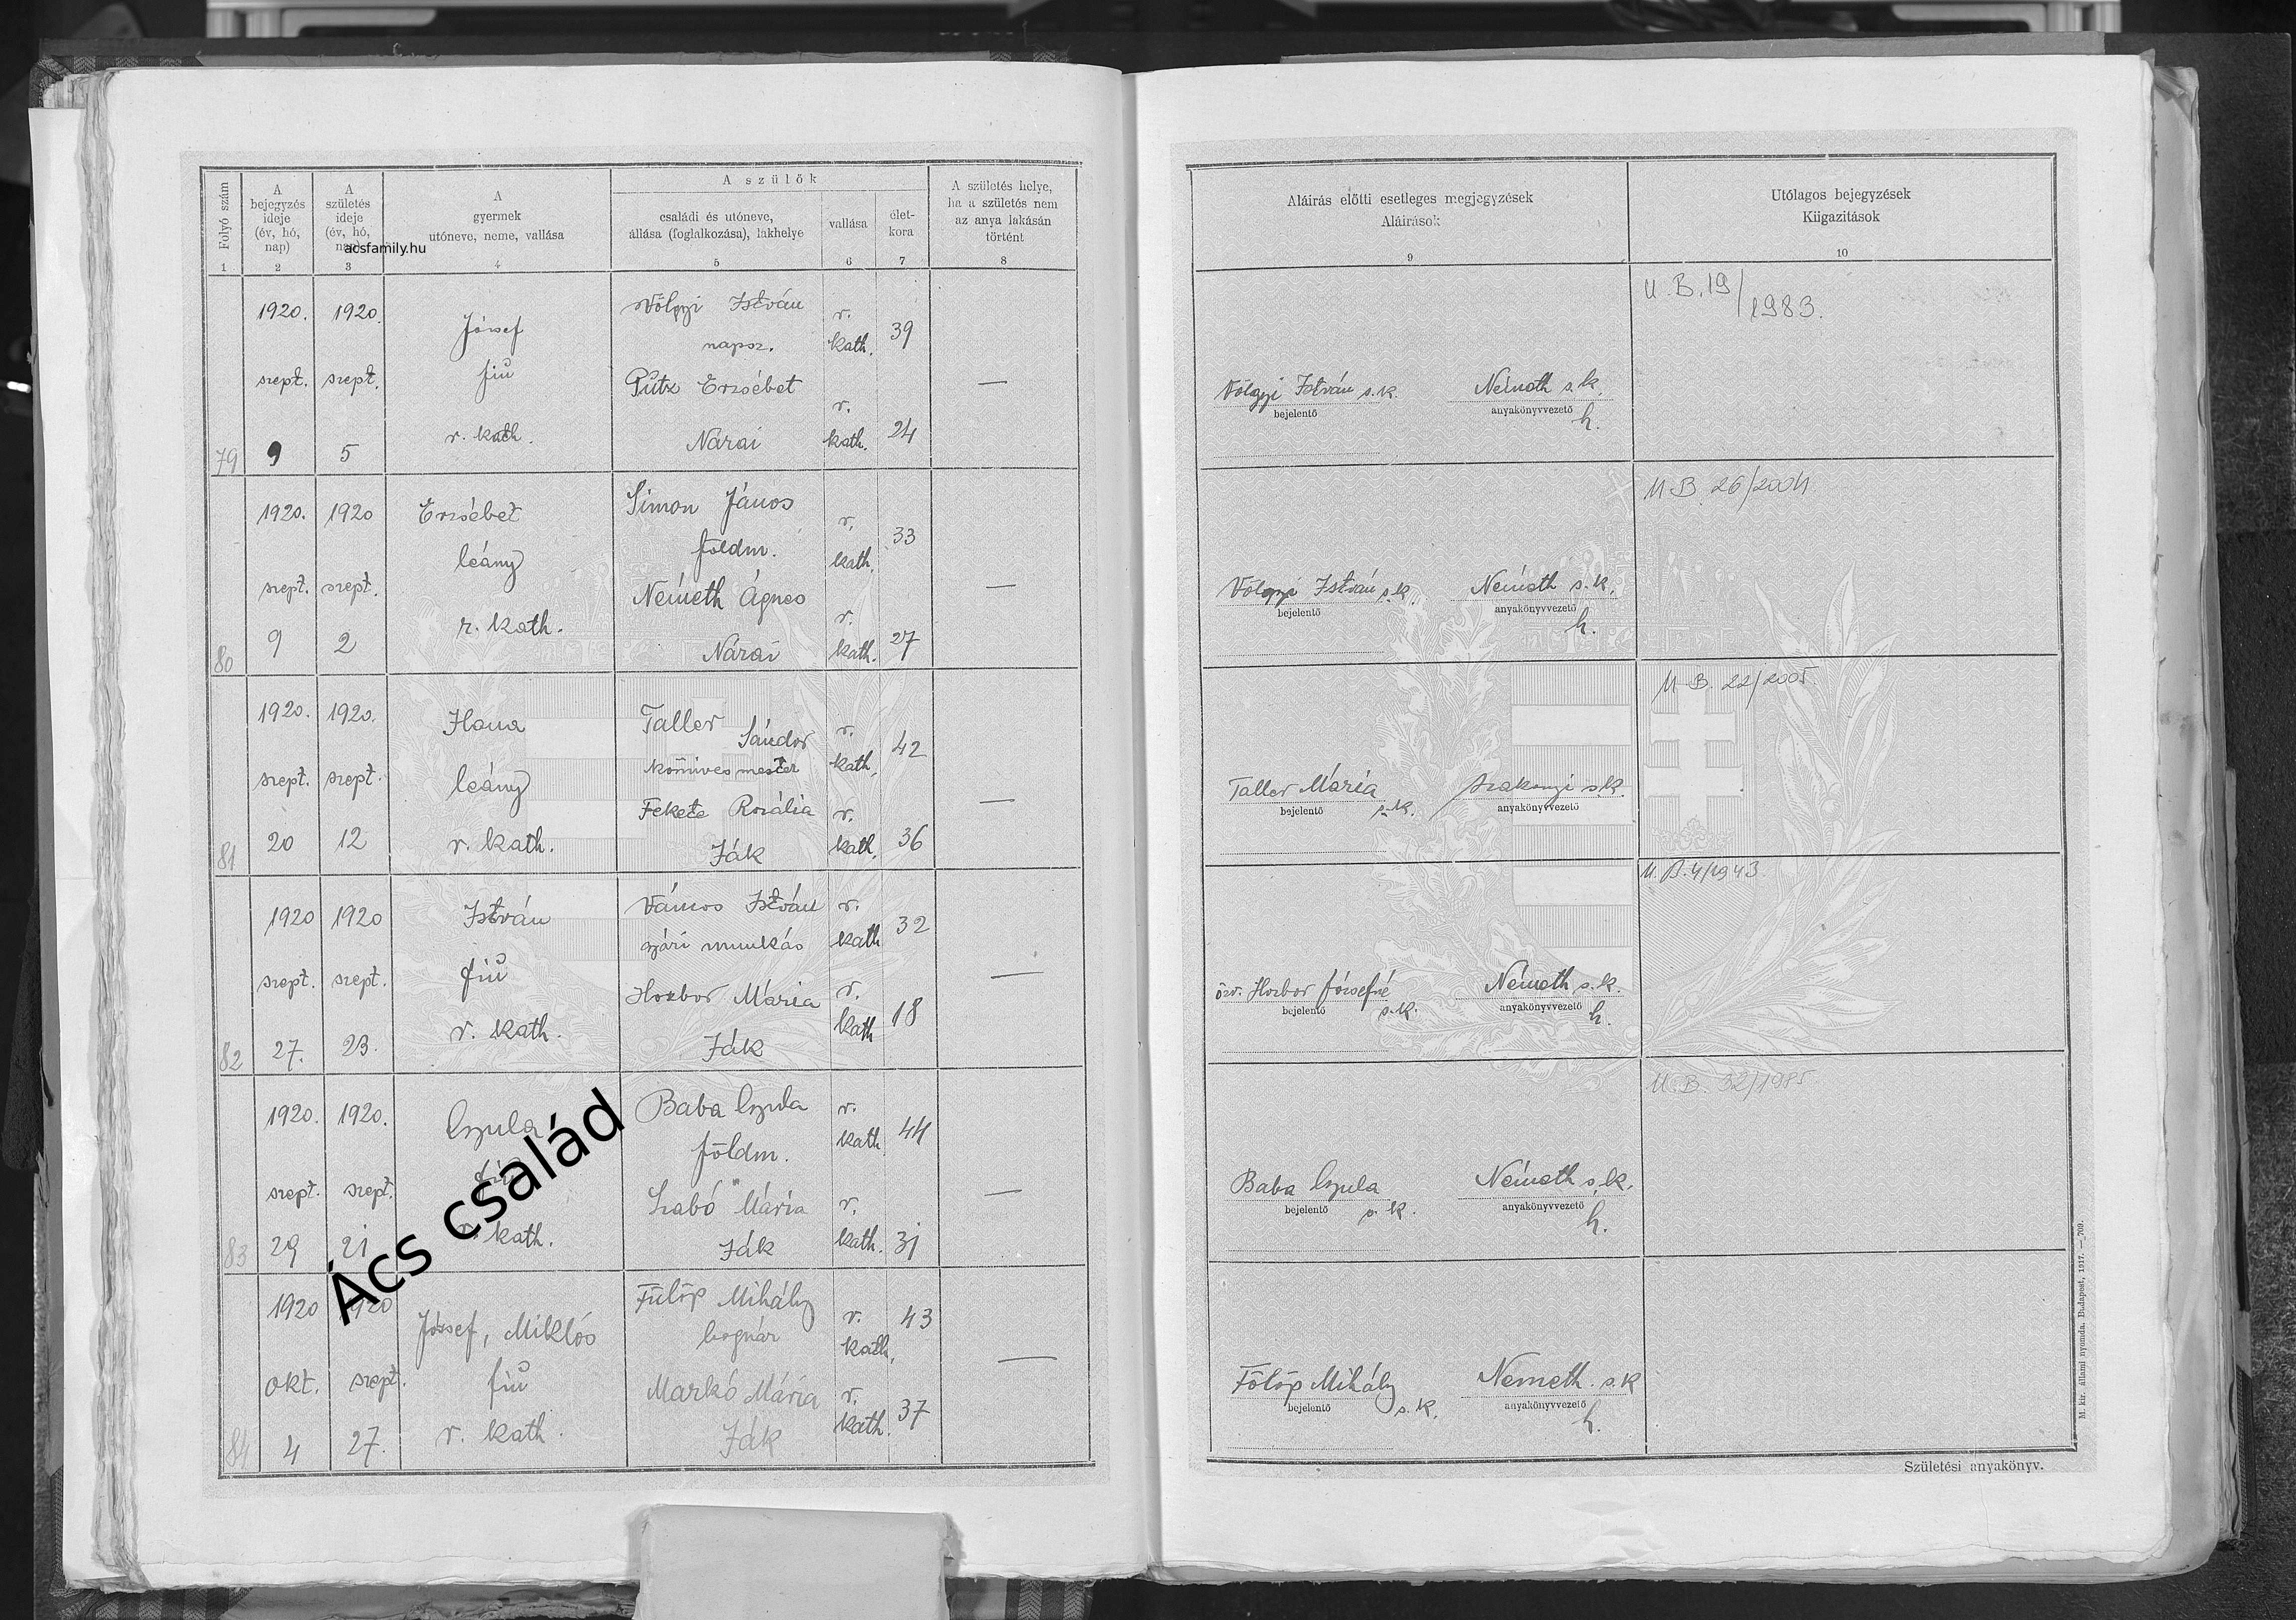 Folyó szám
A bejegyzés ideje (év, hó, nap)
A születés ideje (év, hó, nap)
A gyermek utóneve, neme, vallása
A szülők
családi és utóneve, állása (foglalkozása), lakhelye
vallása
életkora
A születés helye, ha a születés nem az anya lakásán történt
acsfamily.hu
1 2 3 4 5 6 7 8
1920. 1920. József Völgyi István r. kath. 39
napsz.
szept. szept. fiú Putz Erzsébet —
r. kath. Nárai r. kath. 24
79 9 5
1920. 1920 Erzsébet Simon János r. kath. 33
leány földm.
szept. szept. Németh Ágnes —
80 9 2 r. kath. Nárai r. kath. 27
1920. 1920. Ilona Taller Sándor r. kath. 42
szept. szept. leány kőmives mester
Fekete Rozália —
81 20 12 r. kath. Ják r. kath. 36
1920 1920 István Vámos István r. kath 32
gyári munkás
szept. szept. fiú Horbor Mária —
82 27. 23. r. kath. Ják r. kath 18
1920. 1920. Gyula Baba Gyula r. kath 44
földm.
szept. szept. fiú Szabó Mária —
83 29 21 r. kath. Ják r. kath. 31
1920 1920 József, Miklós Fülöp Mihály r. kath. 43
bognár
okt. szept. fiú Markó Mária —
84 4 27. r. kath. Ják r. kath. 37
Ács család
Aláírás előtti esetleges megjegyzések
Aláírások
9
Utólagos bejegyzések
Kiigazítások
10
U.B. 19/1983.
Völgyi István s.k. Németh s.k.
bejelentő anyakönyvvezető h.
U.B. 26/2004
Völgyi István s.k. Németh s.k.
bejelentő anyakönyvvezető h.
U.B. 22/2005.
Taller Mária s.k. Szakonyi s.k.
bejelentő anyakönyvvezető
U.B. 4/1943.
özv. Horbor Józsefné s.k. Németh s.k.
bejelentő anyakönyvvezető h.
U.B. 32/1985
Baba Gyula s.k. Németh s.k.
bejelentő anyakönyvvezető h.
Fülöp Mihály s.k. Németh s.k
bejelentő anyakönyvvezető h.
M. kir. állami nyomda. Budapest, 1917. — 709.
Születési anyakönyv.